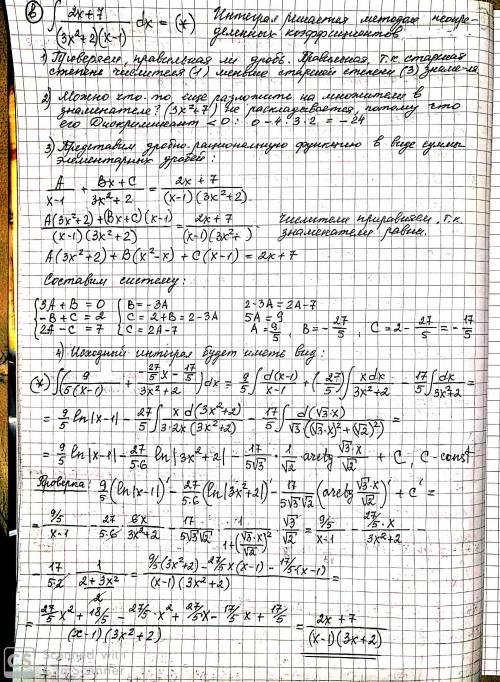 в) ∫ (2x+7)/((3x²+2)(x-1)) dx = (*) Интеграл решается методом неопре-
деленных коэффициентов
1) Проверяем, правильная ли дробь. Правильная, т.к. старшая
степень числителя (1) меньше старшей степени (3) знаме-ля
2) Можно что-то еще разложить на множители в
знаменателе? (3x²+7) не раскладывается, потому что
его Дискриминант < 0: 0-4·3·2 = -24
3) Представим дробно-рациональную функцию в виде суммы
элементарных дробей:
A/(x-1) + (Bx+C)/(3x²+2) = (2x+7)/((x-1)(3x²+2))
(A(3x²+2)+(Bx+C)(x-1))/((x-1)(3x²+2)) = (2x+7)/((x-1)(3x²+ ) числители приравняем, т.к.
знаменатели равны.
A(3x²+2) + B(x²-x) + C(x-1) = 2x+7
Составим систему:
{3A+B=0 {B=-3A 2-3A=2A-7
{-B+C=2 {C=2+B=2-3A 5A=9
{2A-C=7 {C=2A-7 A=9/5, B=-27/5, C=2-27/5=-17/5
4) Исходный интеграл будет иметь вид:
(*) ∫(9/(5(x-1)) + (-27/5 x - 17/5)/(3x²+2))dx = 9/5 ∫ d(x-1)/(x-1) + (-27/5)∫ xdx/(3x²+2) - 17/5 ∫ dx/(3x²+2) =
= 9/5 ln|x-1| - 27/5 ∫ x d(3x²+2)/(3·2x(3x²+2)) - 17/5 ∫ d(√3·x)/(√3·((√3·x)²+(√2)²)) =
= 9/5 ln|x-1| - 27/(5·6) ln|3x²+2| - 17/(5√3) · 1/√2 arctg (√3·x)/√2 + C, C-const
Проверка: 9/5 (ln|x-1|)' - 27/(5·6) (ln|3x²+2|)' - 17/(5√3√2) (arctg (√3·x)/√2)' + C' =
= (9/5)/(x-1) - 27/(5·6) · 6x/(3x²+2) - 17/(5√3√2) · 1/(1+((√3·x)/√2)²) · √3/√2 = (9/5)/(x-1) - (27/5·x)/(3x²+2) -
- 17/(5·2) · 1/((2+3x²)/2) = (9/5(3x²+2) - 27/5 x(x-1) - 17/5(x-1))/((x-1)(3x²+2)) =
= (27/5 x² + 18/5 - 27/5 x² + 27/5 x - 17/5 x + 17/5)/((x-1)(3x²+2)) = (2x+7)/((x-1)(3x+2))
CS Scanned with